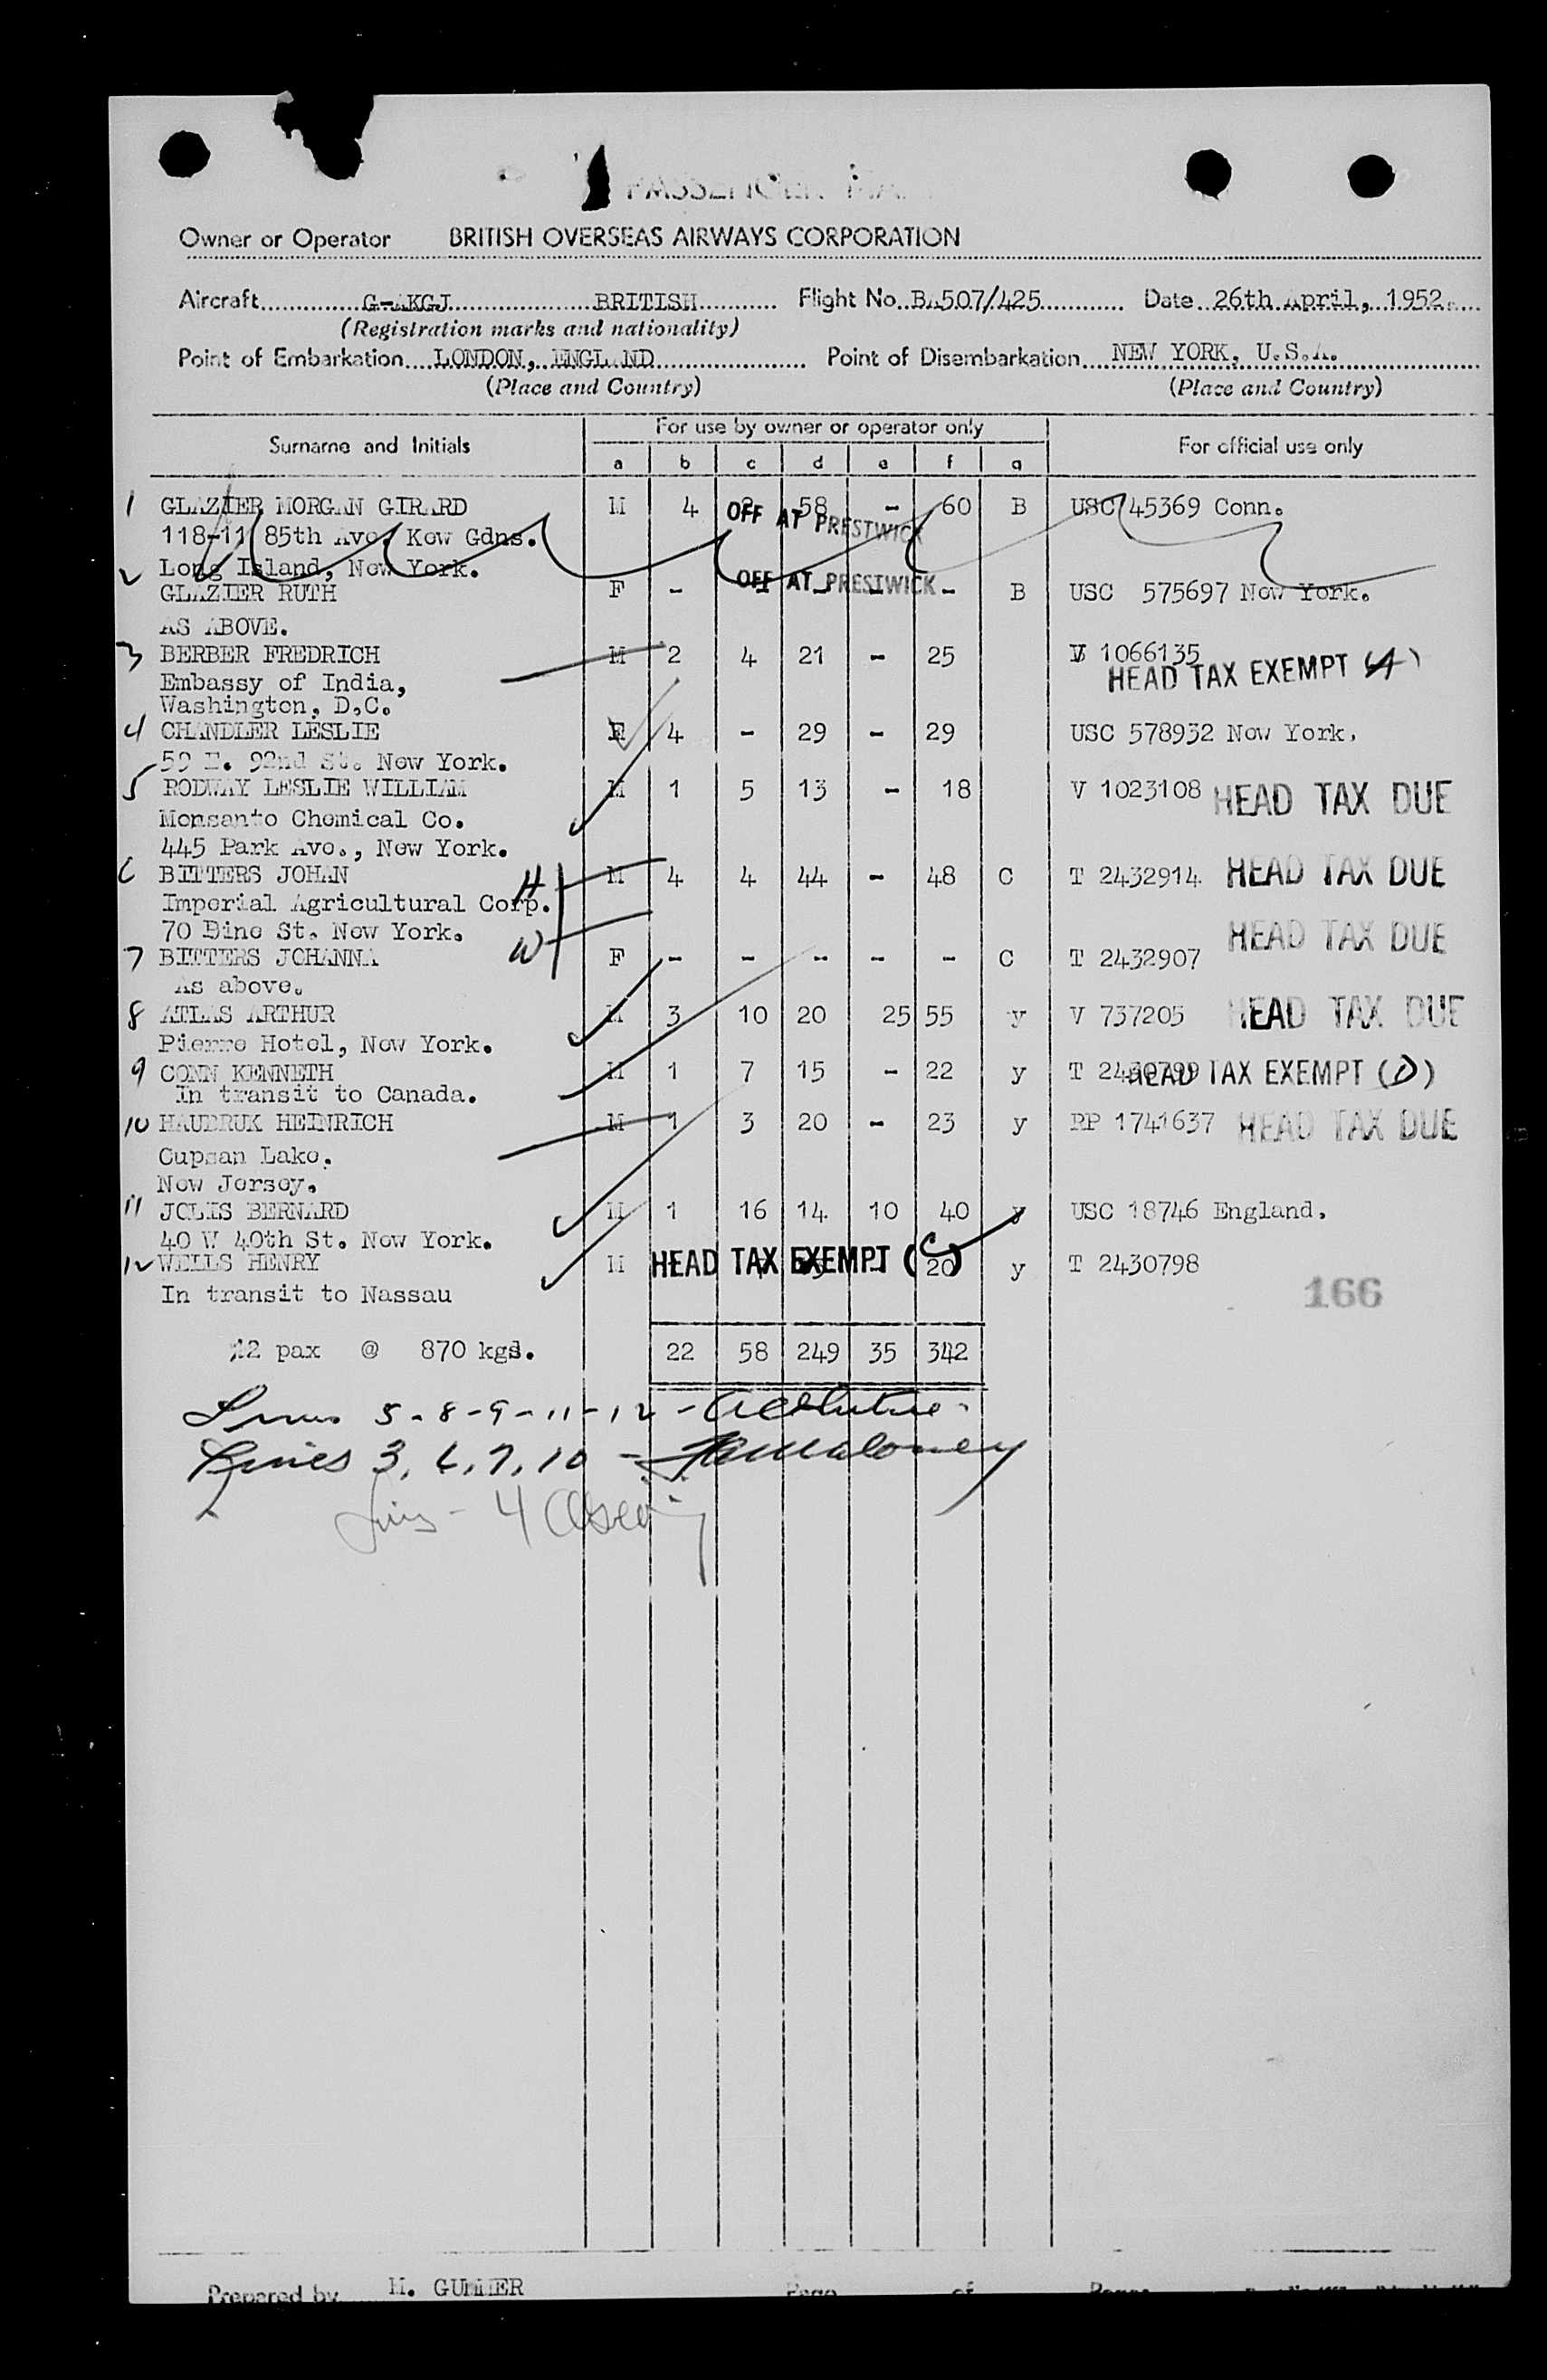 Owner or Operator BRITISH OVERSEAS AIRWAYS CORPORATION
Aircraft G-AKGJ BRITISH Flight No. BA507/425 Date 26th April, 1952.
(Registration marks and nationality)
Point of Embarkation LONDON, ENGLAND Point of Disembarkation NEW YORK, U.S.A.
(Place and Country) (Place and Country)
Surname and Initials For use by owner or operator only For official use only
a b c d e f g
1 GLAZIER MORGAN GIRARD M 4 2 58 - 60 B USC 45369 Conn.
OFF AT PRESTWICK
118-11 85th Ave. Kew Gdns.
Long Island, New York.
2 GLAZIER RUTH F - - - - - B USC 575697 New York.
OFF AT PRESTWICK
AS ABOVE.
3 BERBER FREDRICH M 2 4 21 - 25 V 1066135
HEAD TAX EXEMPT (A)
Embassy of India,
Washington, D.C.
4 CHANDLER LESLIE 4 - 29 - 29 USC 578932 New York.
59 E. 92nd St. New York.
5 RODWAY LESLIE WILLIAM M 1 5 13 - 18 V 1023108 HEAD TAX DUE
Monsanto Chemical Co.
445 Park Ave., New York.
6 BITTERS JOHAN H M 4 4 44 - 48 C T 2432914 HEAD TAX DUE
Imperial Agricultural Corp.
70 Dine St. New York.
HEAD TAX DUE
7 BITTERS JOHANNA W F - - - - - C T 2432907
As above.
8 ATLAS ARTHUR M 3 10 20 25 55 y V 737205 HEAD TAX DUE
Pierre Hotel, New York.
9 CONN KENNETH M 1 7 15 - 22 y T 2430799 HEAD TAX EXEMPT (D)
In transit to Canada.
10 HAUDRUK HEINRICH M 1 3 20 - 23 y RP 1741637 HEAD TAX DUE
Cupsan Lake.
New Jersey.
11 JOLIS BERNARD M 1 16 14 10 40 y USC 18746 England.
40 W 40th St. New York.
12 WELLS HENRY M HEAD TAX EXEMPT (C) 20 y T 2430798
In transit to Nassau
166
12 pax @ 870 kgs. 22 58 249 35 342
Lines 5-8-9-11-12 -
Lines 3, 6, 7, 10 - Maloney
Lines - 4
Prepared by M. GUMMER Page of Pages